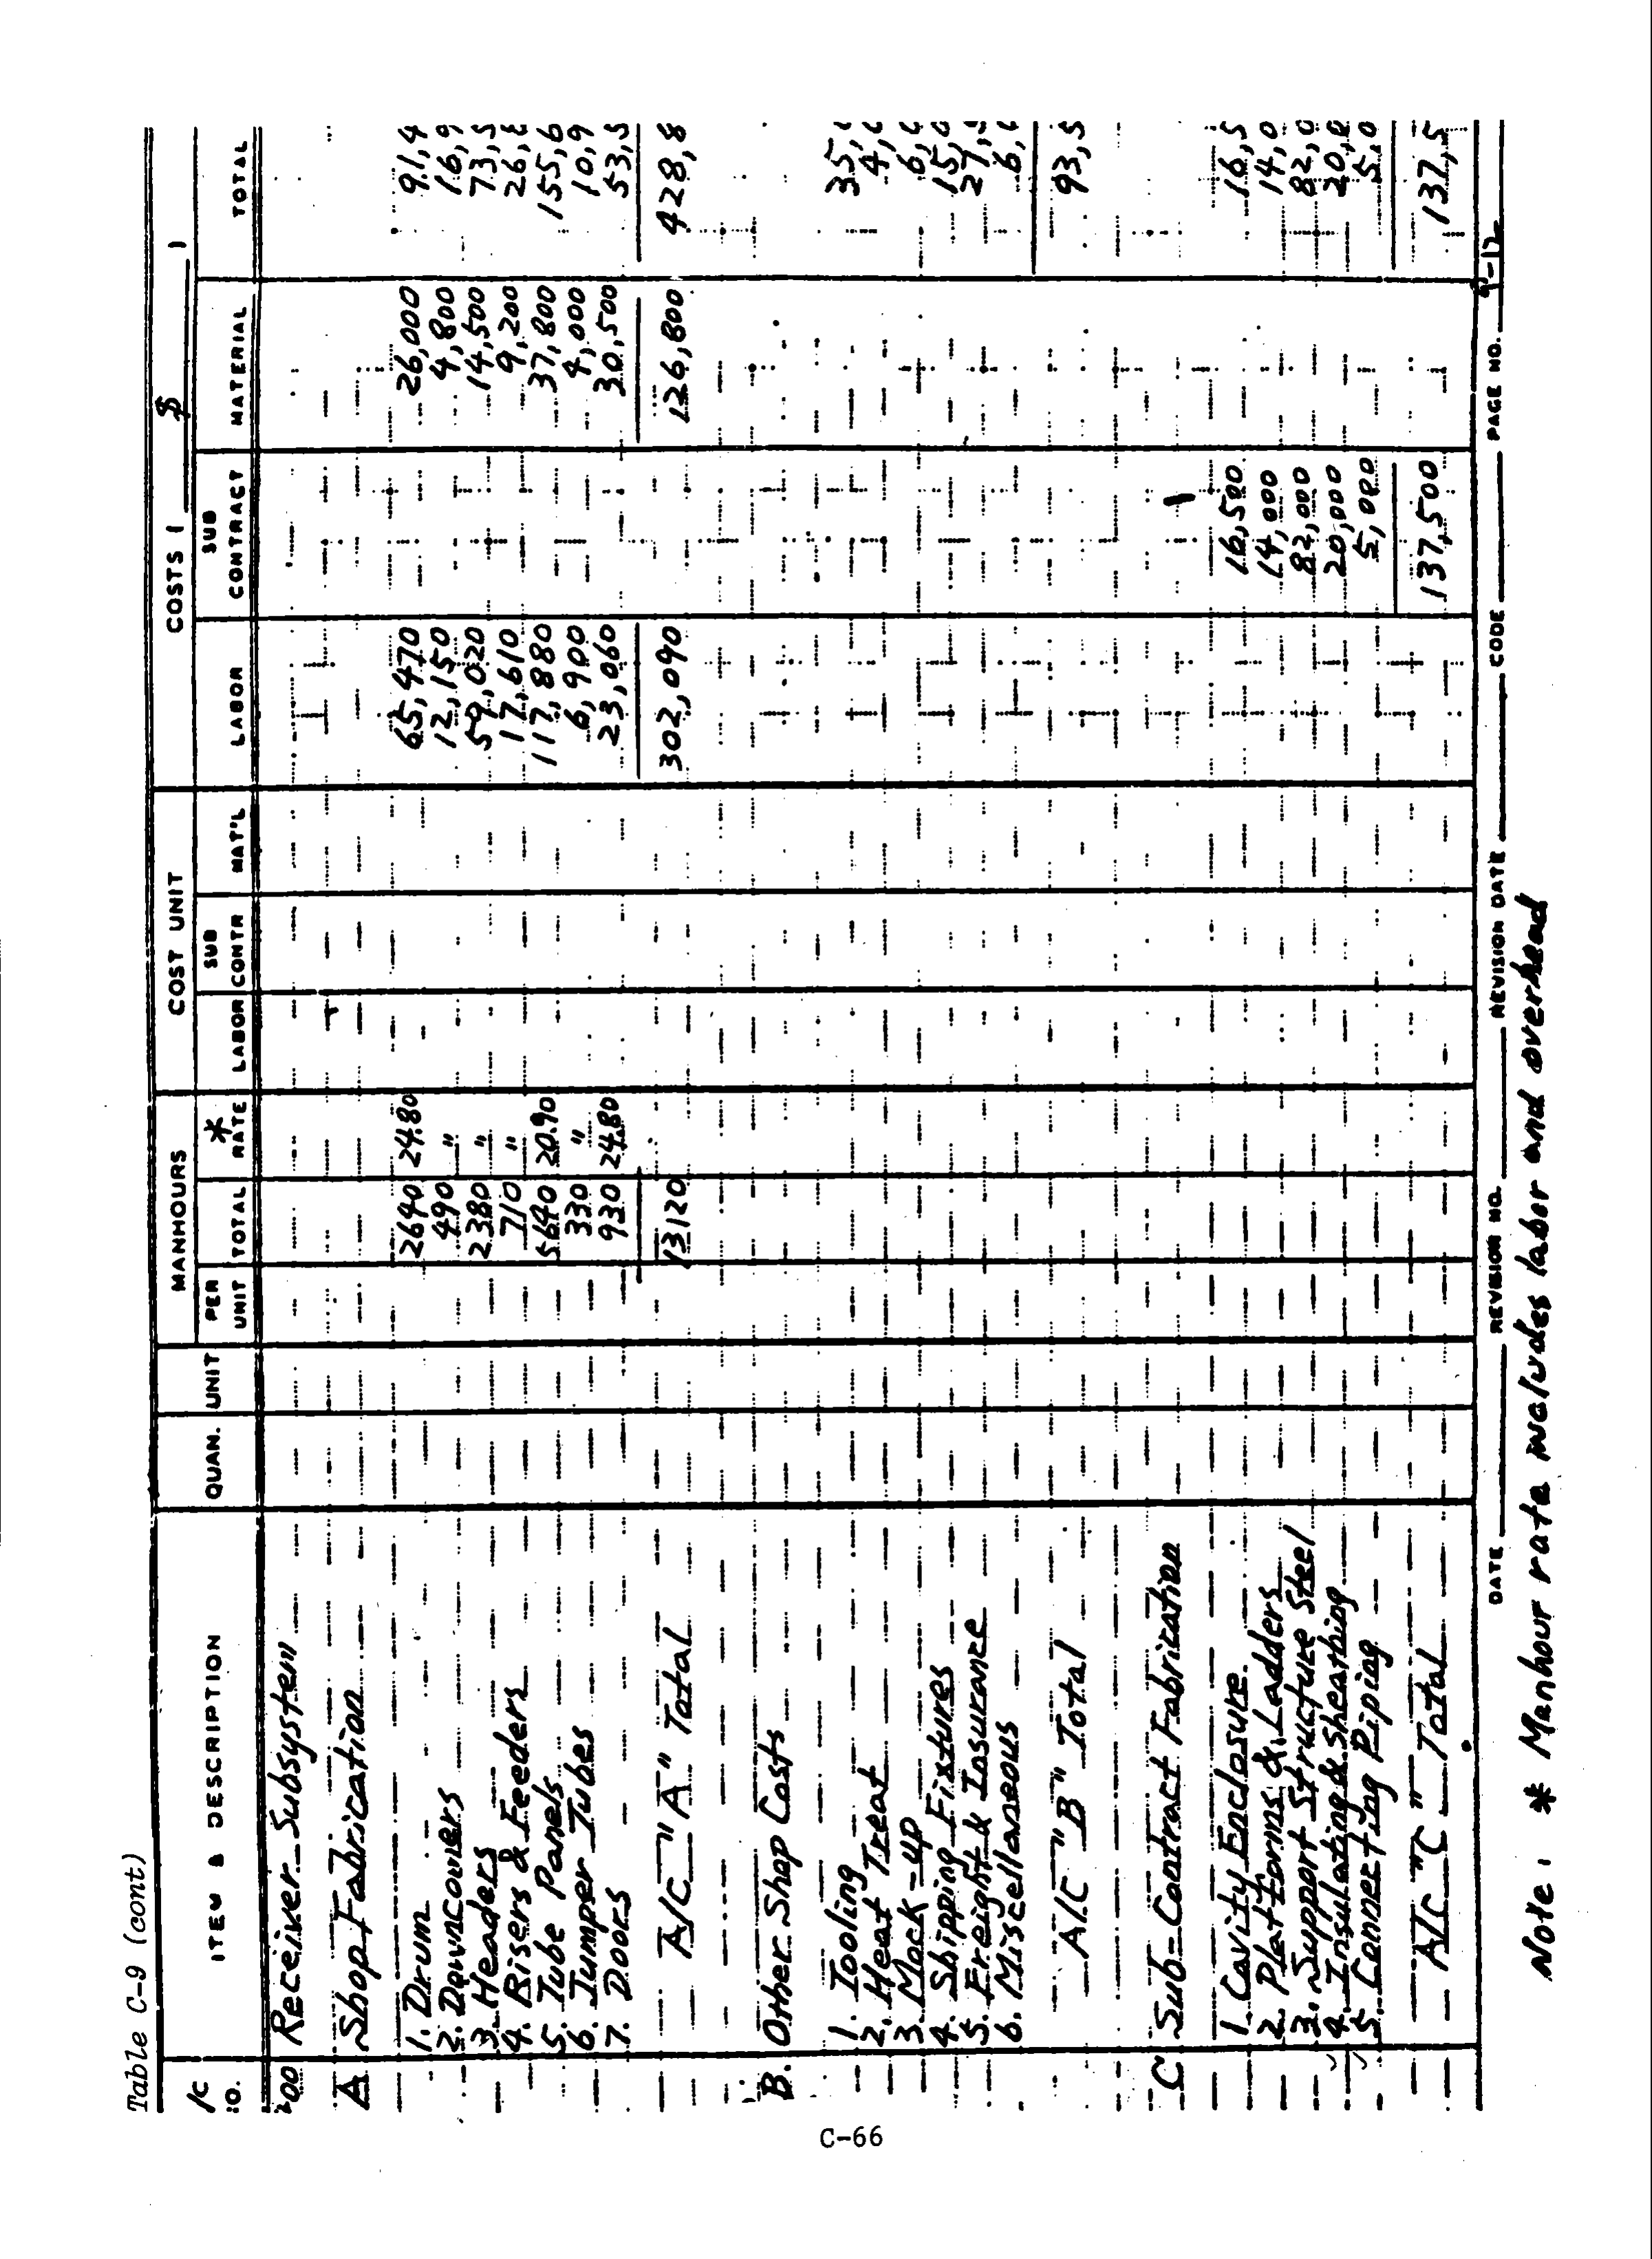 Table C-9 (cont)
/C :O. ITEM & DESCRIPTION QUAN. UNIT MANHOURS PER UNIT TOTAL * RATE COST UNIT LABOR SUB CONTR MAT'L COSTS ( $ ) LABOR SUB CONTRACT MATERIAL TOTAL
00 Receiver Subsystem
A Shop Fabrication
1. Drum 2640 24.80 65,470 26,000 91,4
2. Downcomers 490 " 12,150 4,800 16,9
3. Headers 2380 " 59,020 14,500 73,5
4. Risers & Feeders 710 " 17,610 9,200 26,8
5. Tube Panels 5640 20.90 117,880 37,800 155,6
6. Jumper Tubes 330 " 6,900 4,000 10,9
7. Doors 930 24.80 23,060 30,500 53,5
A/C "A" Total 13120 302,090 126,800 428,8
B. Other Shop Costs
1. Tooling 35,
2. Heat Treat 4,
3. Mock-up 6,
4. Shipping Fixtures 15,0
5. Freight & Insurance 27,
6. Miscellaneous 6,
A/C "B" Total 93,5
C Sub-Contract Fabrication
1. Cavity Enclosure 16,500 16,5
2. Platforms & Ladders 14,000 14,0
3. Support Structure Steel 82,000 82,0
4. Insulating & Sheathing 20,000 20,0
5. Connecting Piping 5,000 5,0
A/C "C" Total 137,500 137,5
DATE REVISION NO. REVISION DATE CODE PAGE NO. 9-12
Note: * Manhour rate includes labor and overhead
C-66